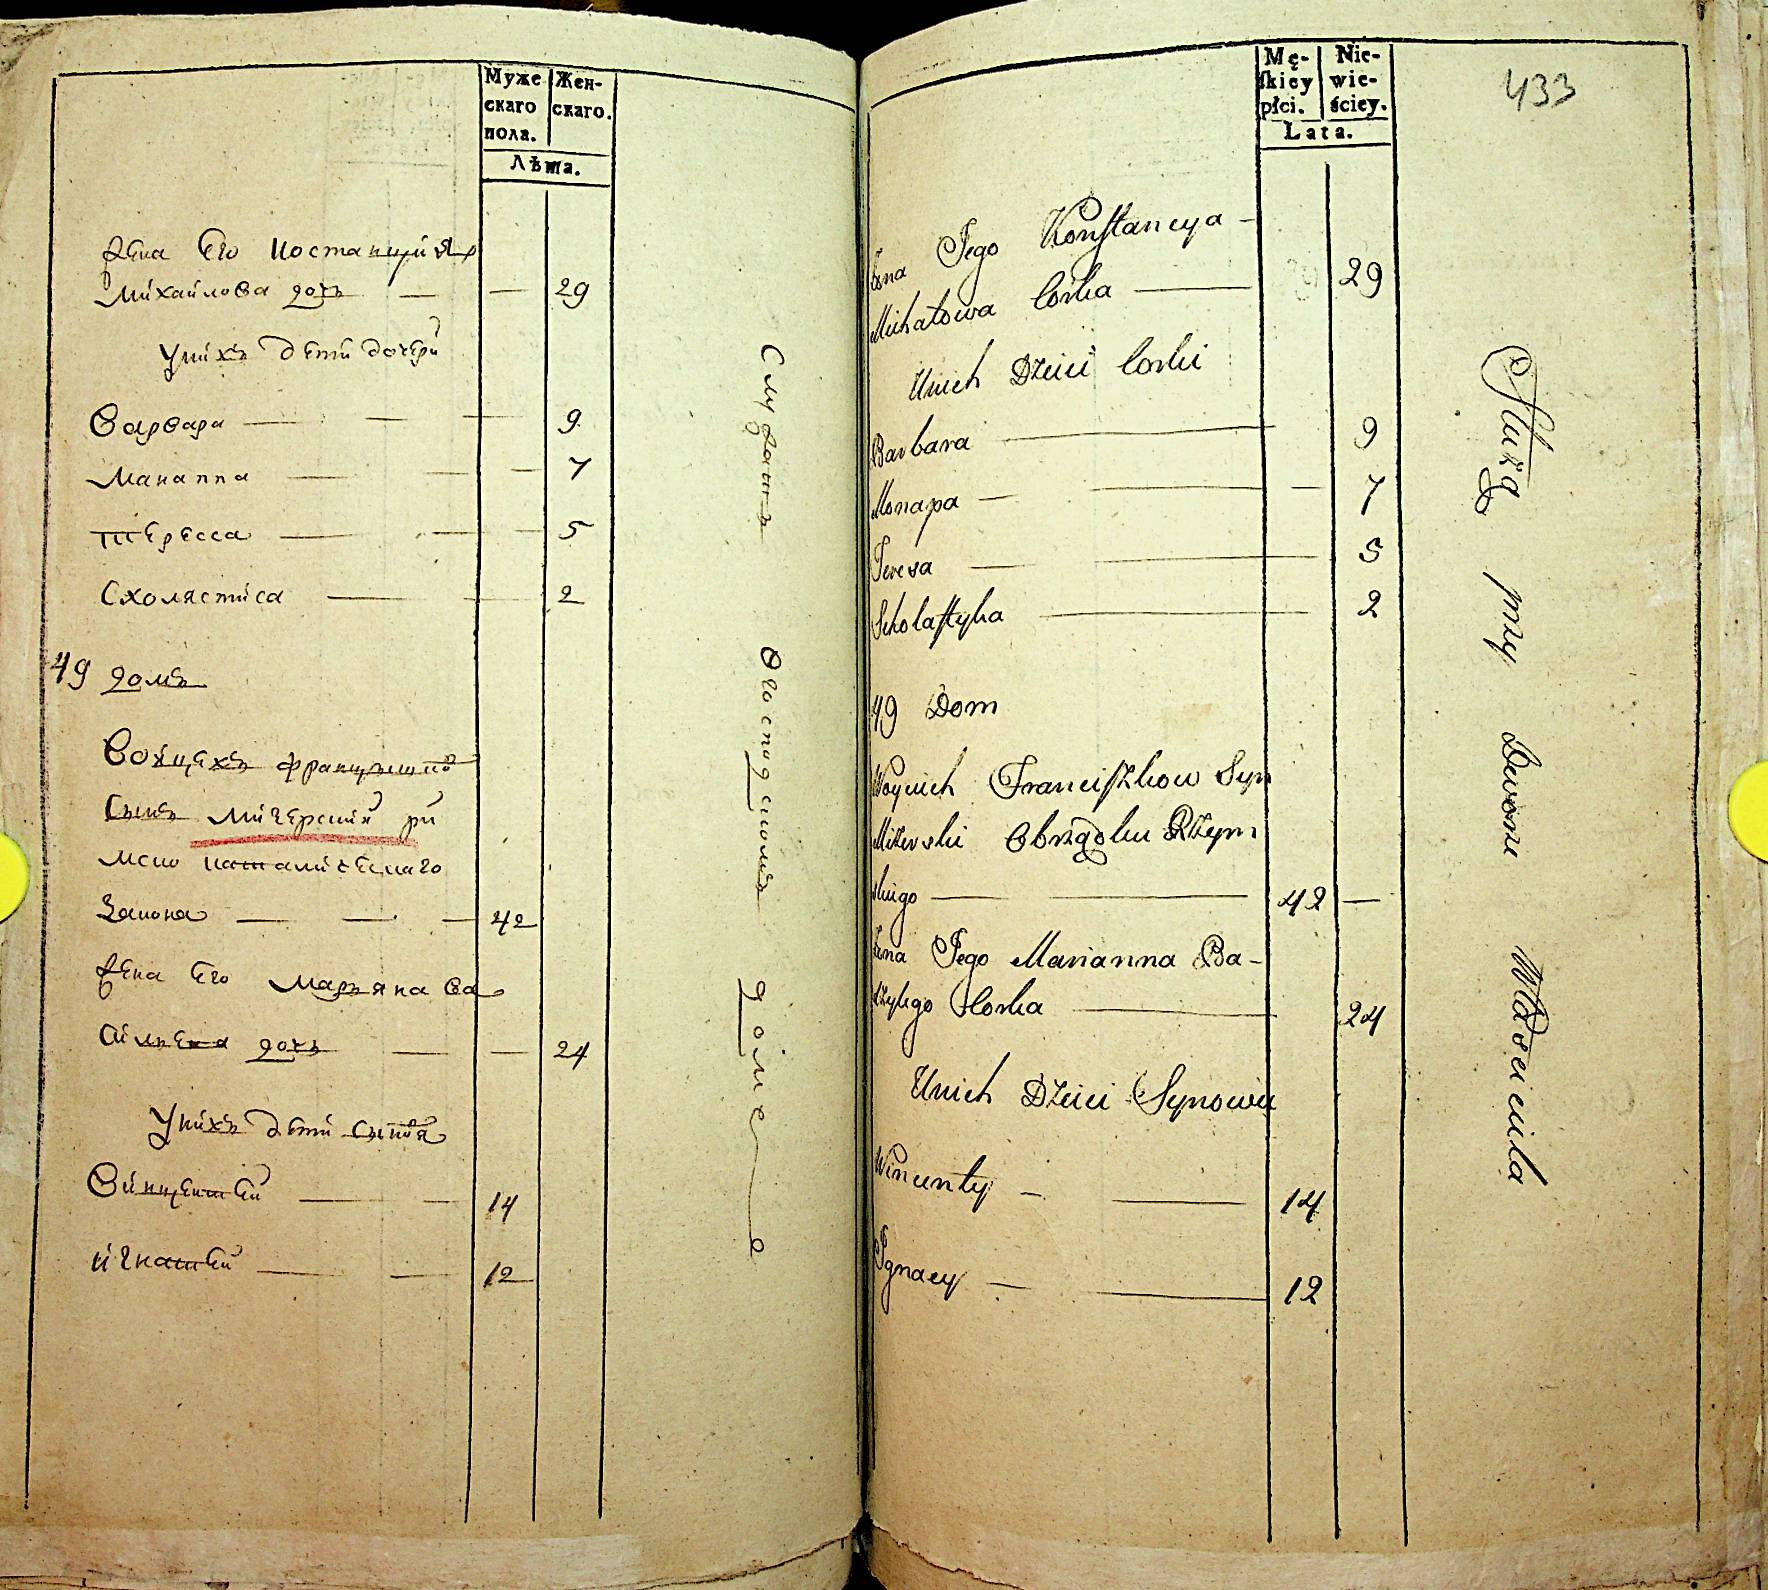 Муже
скаго
пола.
Жен-
скаго.
Лѣта.
Жена Его Костанцiя
Михайлова дочь — — 29
Унихъ дети дочери
Варвара — — — 9
Марiанна — — — 7
Тересса — — 5
Схолястiса — — 2
49 домъ
Войцехъ францишковъ
Сынъ Мичерскiй ри
мско католическаго
Закона — — — 42
Жена Его Марьяна Ва
силиева дочь — — 24
Унихъ дети сыновя
Винцентий — — 14
Игнатий — — 12
Служатъ
господскомъ
доме
Mę-
ſkiey
płci.
Nie-
wie-
ściey.
Lata.
433
Żona Jego Konſtancya -
Michałowa Corka — 29
Unich Dzieci Corki
Barbara — 9
Teresa — — 5
Scholaſtyka — 2
49 Dom
Woyciech Franciſzkow Syn
Miterski Obrządku Rzym
skiego — — 42 —
Żona Jego Marianna Ba-
zylego Corka — 24
Unich Dzieci Synowie
Wincenty — — 14
Ignacy — — 12
Służą przy Dworze Właściciela